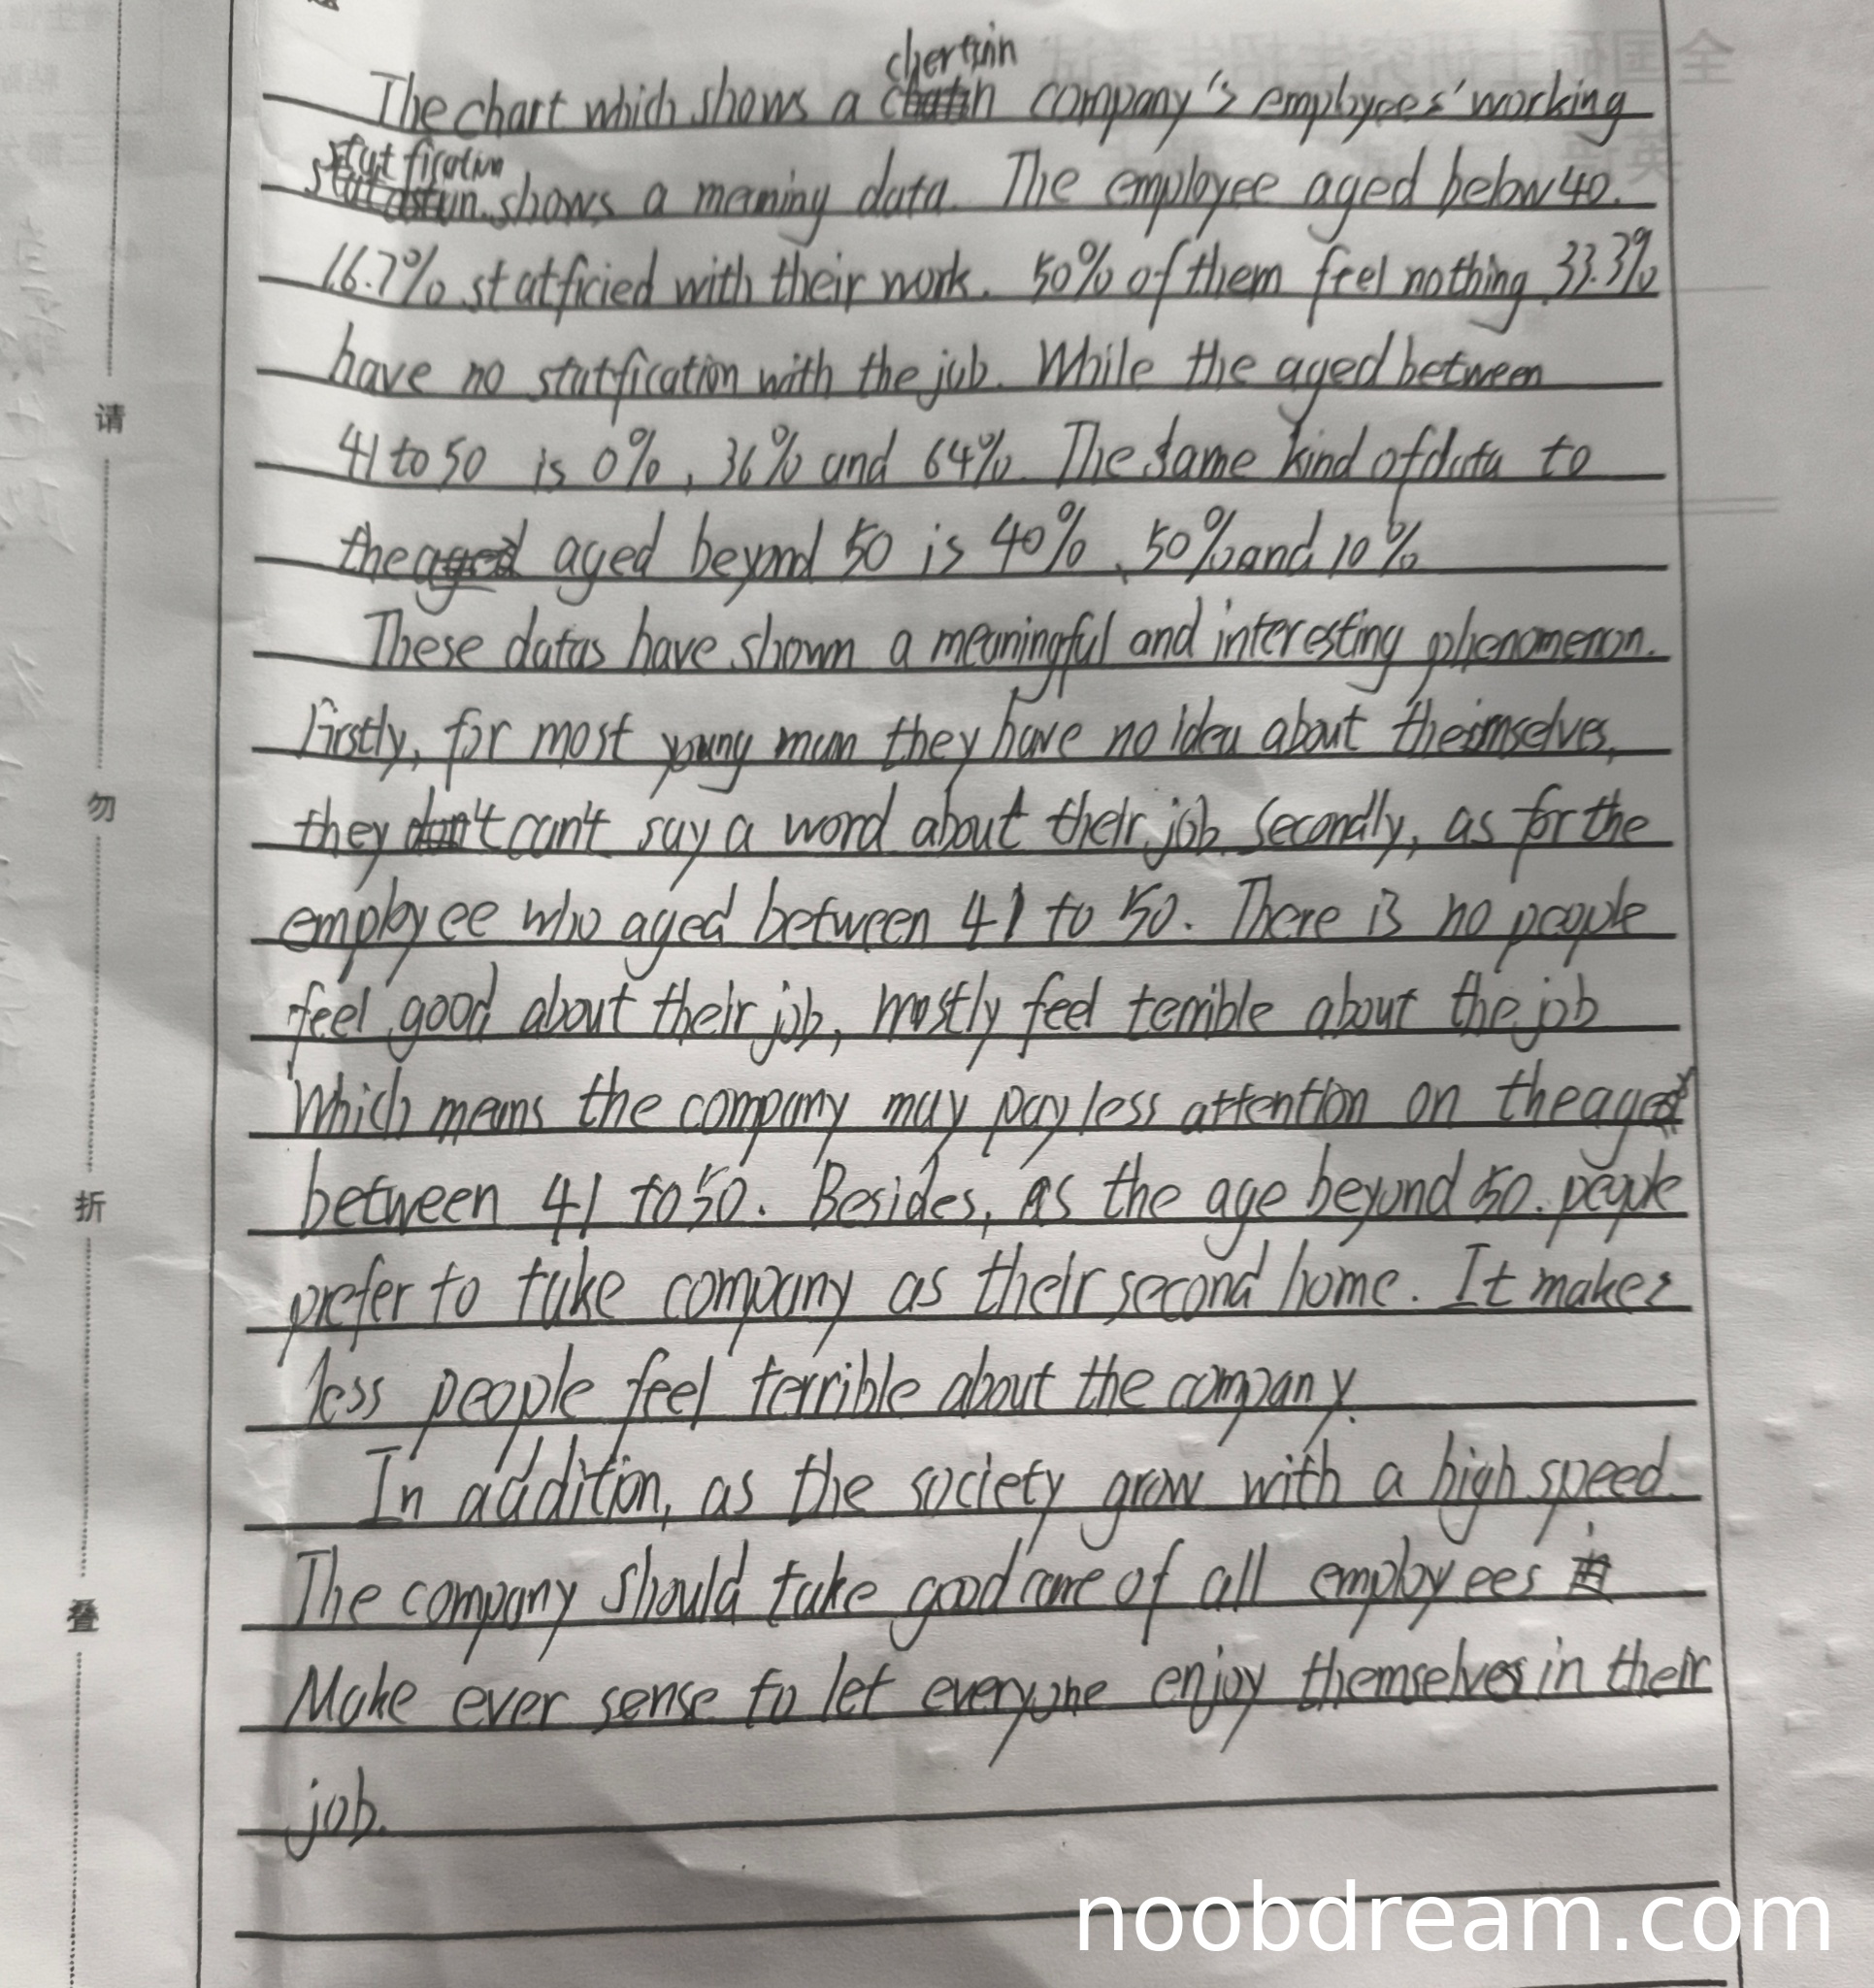 The chart which shows a chertain company's employees' working
statfication shows a meaning data. The employee aged below 40.
16.7% statficied with their work. 50% of them feel nothing. 33.3%
have no statfication with the job. While the aged between
41 to 50 is 0%, 36% and 64%. The same kind of data to
the aged beyond 50 is 40%, 50% and 10%
These datas have shown a meaningful and interesting phenomenon.
Firstly, for most young man they have no idea about themselves,
they can't say a word about their job. Secondly, as for the
employee who aged between 41 to 50. There is no people
feel good about their job, mostly feel terrible about the job
Which means the company may pay less attention on the aged
between 41 to 50. Besides, as the age beyond 50. people
prefer to take company as their second home. It makes
less people feel terrible about the company.
In addition, as the society grow with a high speed.
The company should take good care of all employees
Make ever sense to let everyone enjoy themselves in their
job.
请
勿
折
叠
noobdream.com